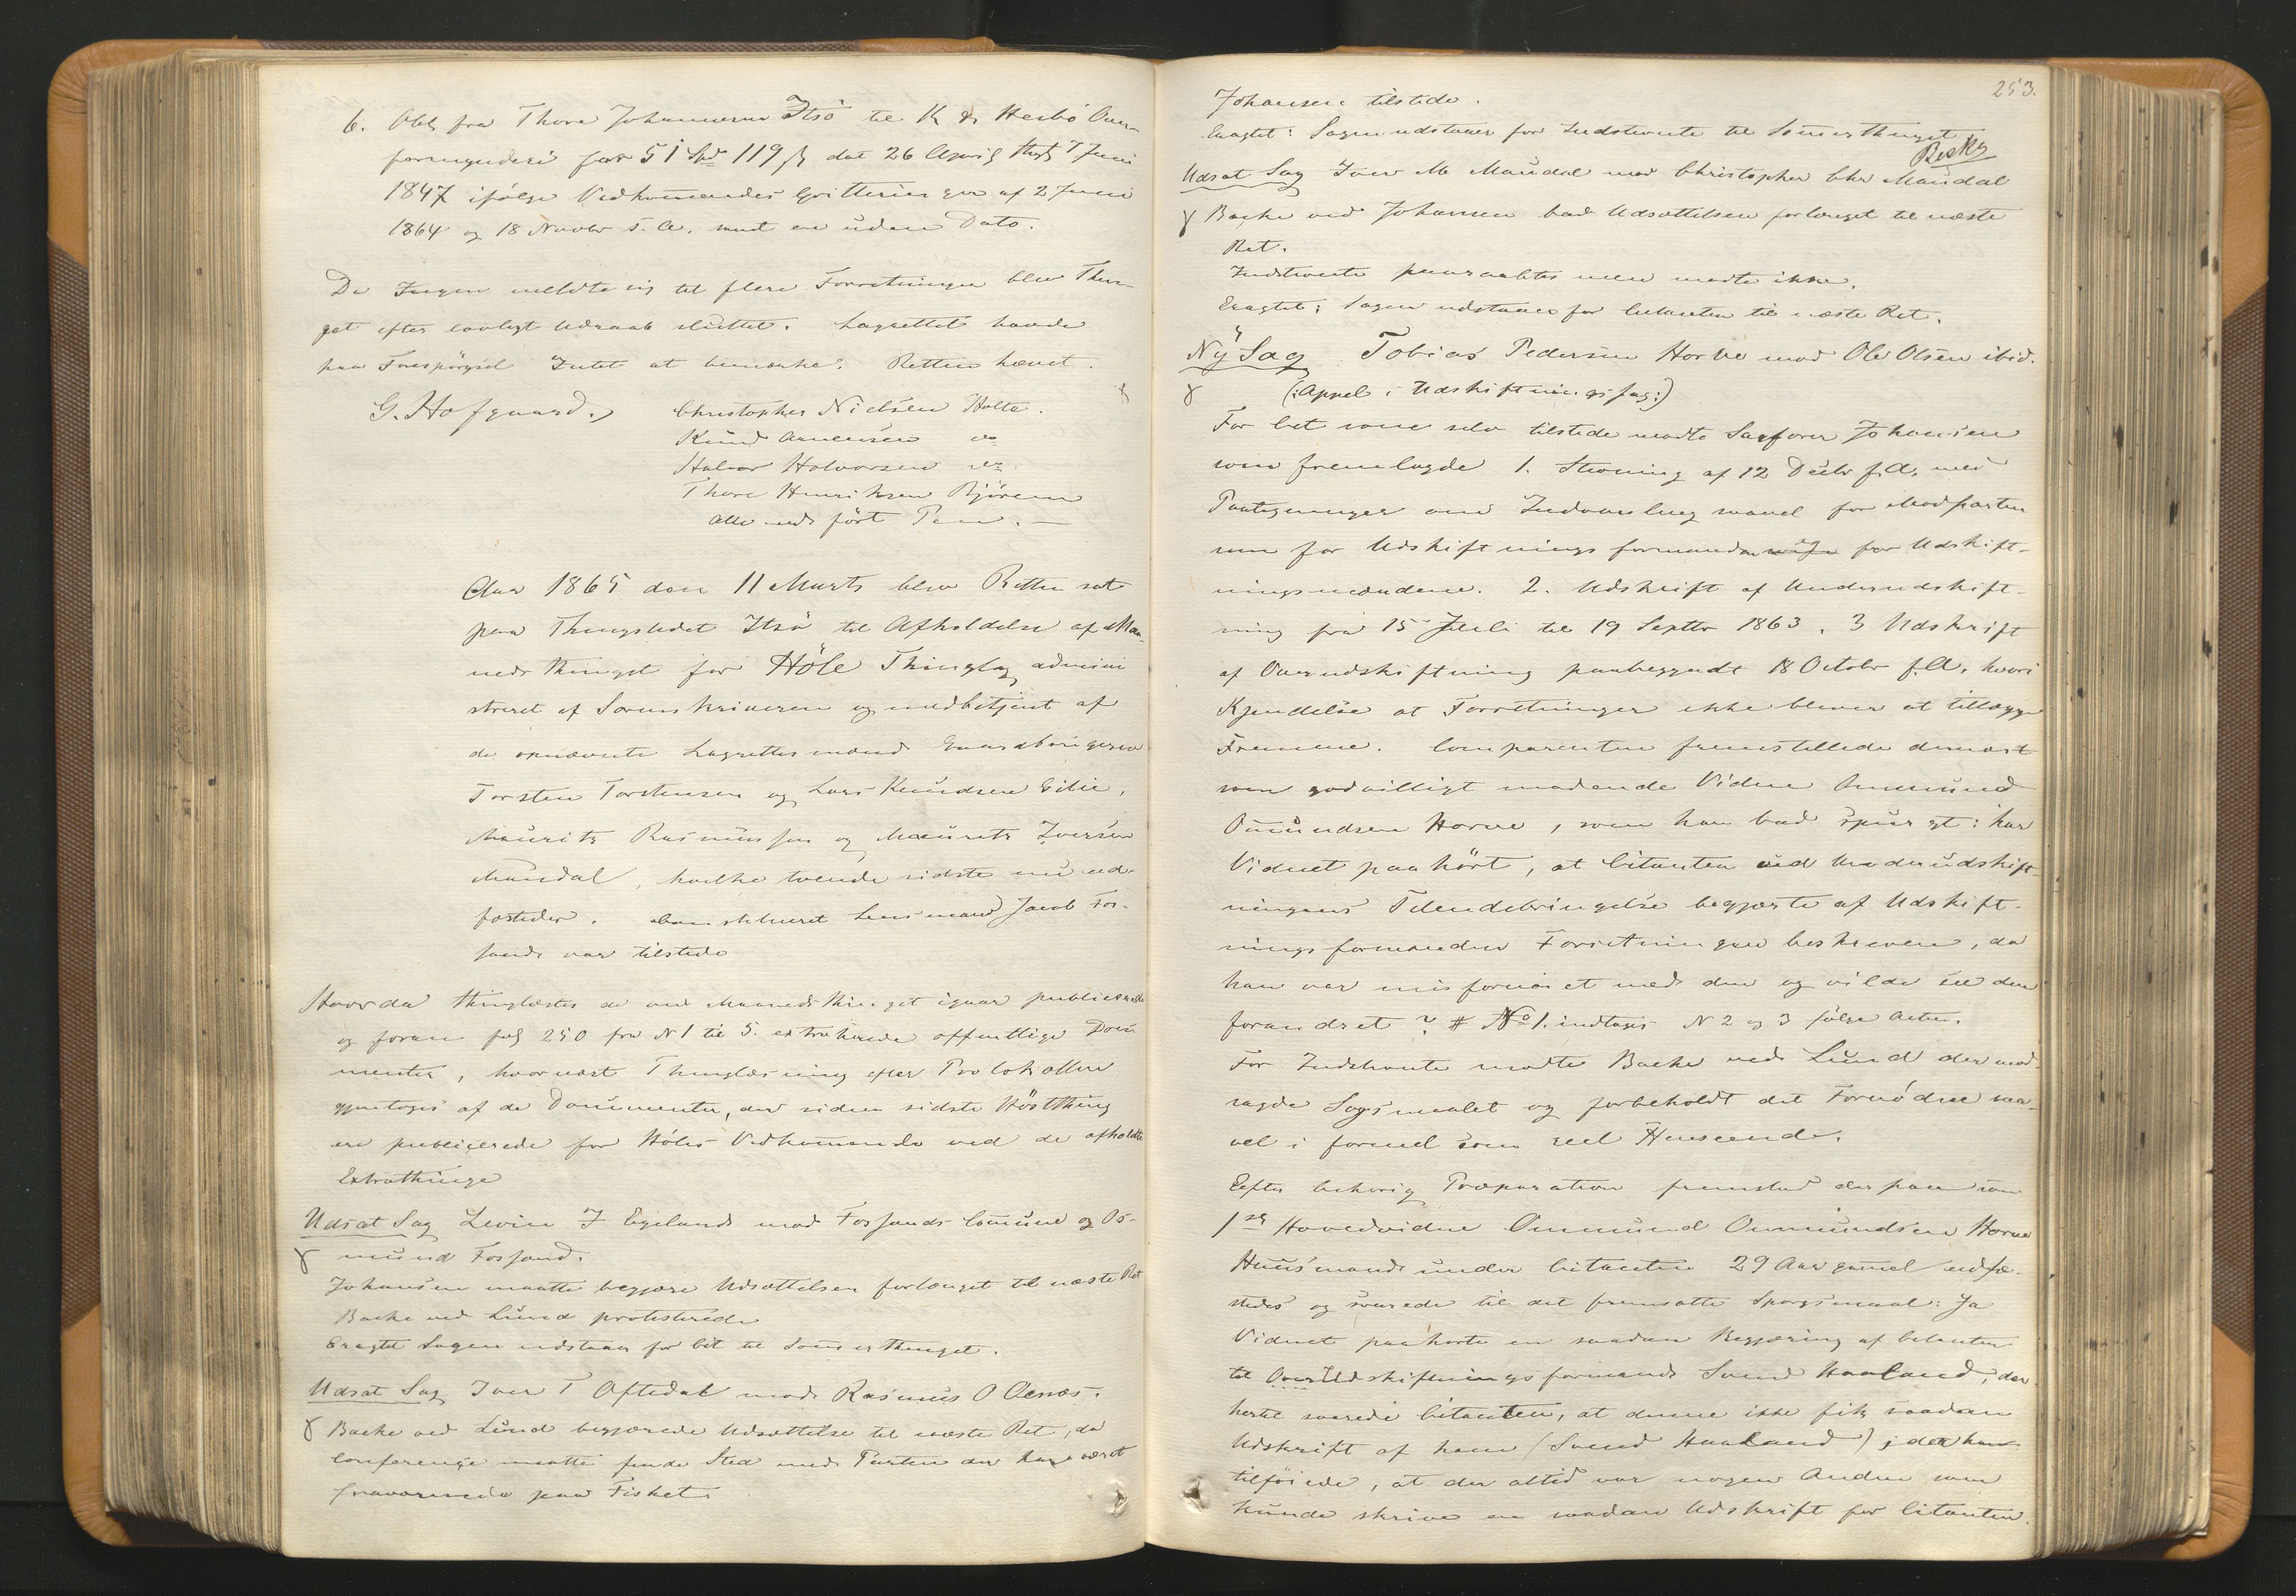 6. Obl fra Thore Johannesen Itsö til K & Hesbö Over-
formynderi for 51 Spd 119 ß dat 26 April thgl 7 Juni
1847 ifölge Vedkommendes Qvitteringer af 2 Juni
1864 og 18 Novbr s. A. samt en uden Dato.
Da Ingen meldte sig til flere Forretninger blev Thin-
get efter lovligt Udraab sluttet. Lagrettet havde
paa Forespörgsel Intet at bemærke. Retten hævet.
G. Hofgaard. Christopher Nielsen Holta.
Knud Arnesen
Halvor Halvorsen
Thore Henriksen Björem
Alle med fört Pen. —
Aar 1865 den 11 Marts blev Retten sat
paa Thingstedet Itsö til Afholdelse af Maa-
nedsthinget for Höle Thinglag admini
streret af Sorenskriveren og medbetjent af
de opnævnte Lagrettesmænd Gaardbrugerne
Torsten Torstensen og Lars Knudsen Eilie,
Mauritz Rasmussen og Mauritz Iversen
Maudal, hvilke tvende sidste nu ed-
fæstedes. Constitueret Lensmand Jacob Fos-
sand var tilstede
Hvorda thinglæstes de ved Maanedsthinget igaar publicerede
og foran fol 250 fra N 1 til 5. extraherede offentlige Docu
menter, hvornæst Thinglæsning efter Protokollen
gjentoges af de Documenter, der siden sidste Höstthing
ere publicerede for Höles Vedkommende ved de afholdte
Extrathinge
Udsat Sag Levin I Egeland mod Fossands Commune og Os-
mund Fossand.
Johansen maatte begjære Udsættelsen forlænget til næste Ret
Bache ved Lund protesterede
Eragtet Sagen udstaaer for Cit til Sommerthinget.
Udsat Sag Iver T Oftedal mod Rasmus O Aenæs.
Bache ved Lund begjærede Udsættelse til næste Ret, da
Conference maatte finde Sted med Parten der har været
fraværende paa Fisket.
253.
Johansen tilstede.
Eragtet: Sagen udstaaer for Indstevnte til Sommerthinget
Beskr
Udsat Sag Iver M Maudal mod Christopher Chr Maudal
Bache ved Johansen bad Udsættelsen forlænget til næste
Ret.
Indstevnte paaraabtes men mødte ikke.
Eragtet: Sagen udstaaer for Citanten til næste Ret.
Ny Sag Tobias Pedersen Horve mod Ole Olsen ibid.
(: Appel i Udskiftningssag:)
For Cit som selv tilstede mødte Sagförer Johansen
som fremlagde 1. Stevning af 12 Decbr f. A. med
Paategninger om Indvarsling saavel for Modparten
som for Udskiftningsformanden og for Udskift-
ningsmændene. 2. Udskrift af Underudskift-
ning fra 15 Juli til 19 Septbr 1863. 3 Udskrift
af Overudskiftning paabegyndt 18 Octobr f. A. hvori
Kjendelse at Forretninger ikke bliver at tillægge
Fremme. Comparenten fremstillede dernæst
som godvilligt mødende Vidne Ommund
Ommundsen Horve, som han bad spurgt: har
Vidnet paahört, at Citanten ved Underudskift-
ningens Tilendebringelse begjærte af Udskift-
ningsformanden Forretningen beskreven, da
han var misfornöiet med den og vilde see den
forandret? # No 1. indtages N 2 og 3 fölge Acten.
For Indstevnte mødte Bache ved Lund der mod-
sagde Sagsmaalet og forbeholdt det Fornödne saa-
vel i formel som reel Henseende.
Efter behörig Præparation fremstod derpaa som
1ste Hovedvidne Ommund Ommundsen Horve
Huusmand under Citanten 29 Aar gammel edfæ-
stedes og svarede til det fremsatte Spørgsmaal: Ja
Vidnet paahörte en saadan Begjæring af Citanten
til OverUdskiftningsformand Svend Haaland, der
hertil svarede Citanten, at denne ikke fik saadan
Udskrift af ham (Svend Haaland) idet han
tilföiede, at der altid var nogen Anden som
kunde skrive en saadan Udskrift for Citanten.